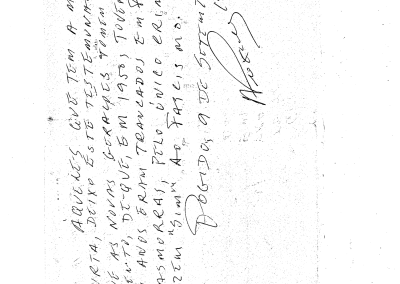 AQUELES QUE TEM A M
URTA, DEIXO ESTE TESTEMUNH
E AS NOVAS GERAÇÕES TOMEM
ENTO, DE QUE, EM 1950, JOVE
ANOS ERAM TRANCADOS EM
ASMORRAS, PELO ÚNICO CRI
ZEM "SIM" AO FASCISMO.
9 DE SETEM